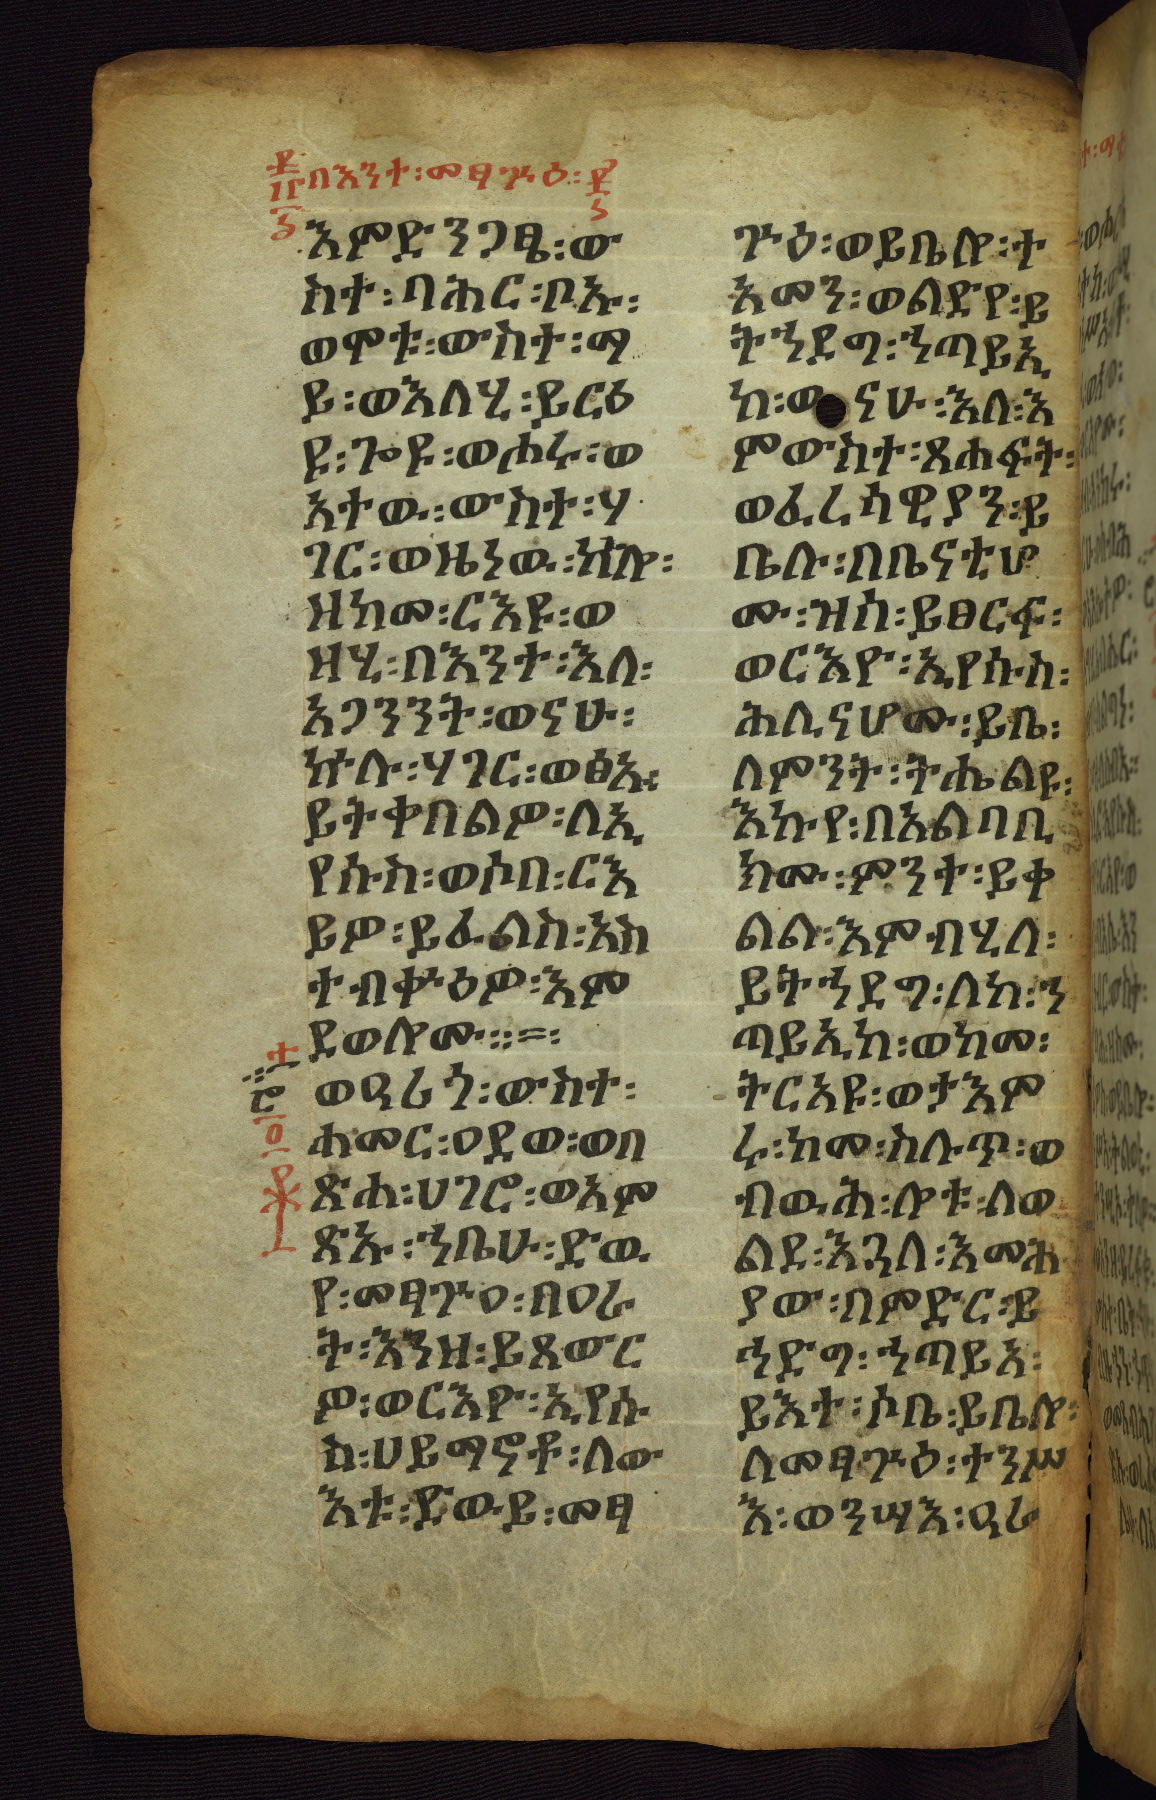 በእንተ፡መፃጉዕ፡
እምድንጋፄ፡ው
ስተ፡ባሕር፡ቦኡ፡
ወሞቱ፡ውስተ፡ማ
ይ፡ወእለሂ፡ይርዕ
ዩ፡ጐዩ፡ወሐሩ፡ወ
አተዉ፡ውስተ፡ሃ
ገር፡ወዜነዉ፡ኵሎ፡
ዘከመ፡ርእዩ፡ወ
ዘሂ፡በእንተ፡እለ፡
አጋንንት፡ወናሁ፡
ኵሉ፡ሃገር፡ወፅአ፡
ይትቀበልዎ፡ለኢ
የሱስ፡ወሶበ፡ርእ
ይዎ፡ይፈልስ፡አስ
ተብቍዕዎ፡እም
ደወሎሙ፡፡=፡
ወዓሪጎ፡ውስተ፡
ሐመር፡ዐደወ፡ወበ
ጽሐ፡ሀገሮ፡ወአም
ጽኡ፡ኀቤሁ፡ድዉ
የ፡መፃጕዐ፡በዐራ
ት፡እንዘ፡ይጸውር
ዎ፡ወርእዮ፡ኢየሱ
ስ፡ሀይማኖቶ፡ለው
እቱ፡ድውይ፡መፃ
ጕዕ፡ወይቤሎ፡ተ
አመን፡ወልድየ፡ይ
ትኀደግ፡ኀጣይኢ
ከ፡ወናሁ፡እለ፡እ
ምውስተ፡ጸሐፍት፡
ወፈሪሳዊያን፡ይ
ቤሉ፡በቤናቲሆ
ሙ፡ዝሰ፡ይፀርፍ፡
ወርእዮ፡ኢየሱስ፡
ሕሊናሆሙ፡ይቤ፡
ለምንት፡ትሔልዩ፡
እኩየ፡በአልባቢ
ክሙ፡ምንተ፡ይቀ
ልል፡እምብሂለ፡
ይትኀደግ፡ለከ፡ኀ
ጣይኢከ፡ወከመ፡
ትርአዩ፡ወታእም
ሩ፡ከመ፡ስሉጥ፡ወ
ብዉሕ፡ሎቱ፡ለወ
ልደ፡እጓለ፡እመሕ
ያው፡በምድር፡ይ
ኅድግ፡ኀጣይአ፡
ይእተ፡ሶቤ፡ይቤሎ፡
ለመፃጕዕ፡ተንሥ
እ፡ወንሣእ፡ዓራ